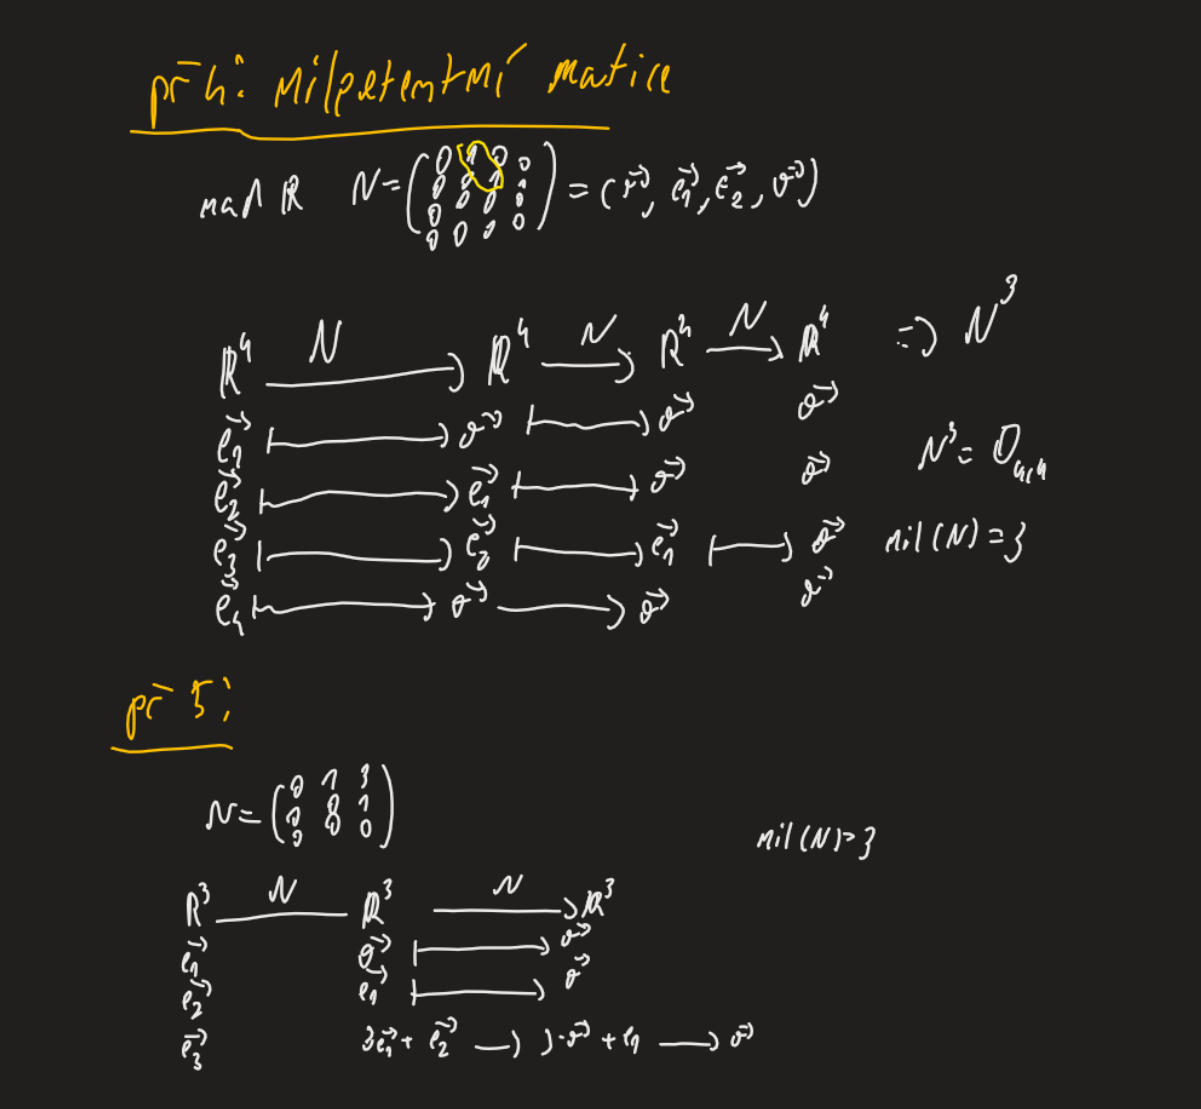 př 4: nilpotentní matice
nad R N = ( 0 1 0 0 = (o⃗, e⃗₁, e⃗₂, o⃗)
0 0 1 0
0 0 0 0
0 0 0 0 )
R⁴ N → R⁴ N → R⁴ N → R⁴ => N³
e⃗₁ ↦ o⃗ ↦ o⃗ o⃗
N³ = O₄,₄
e⃗₂ ↦ e⃗₁ ↦ o⃗ o⃗
e⃗₃ ↦ e⃗₂ ↦ e⃗₁ ↦ o⃗ nil(N) = 3
e⃗₄ ↦ o⃗ → o⃗ o⃗
př 5:
N = ( 0 1 3
0 0 1
0 0 0 )
nil(N) = 3
R³ N R³ N → R³
e⃗₁ o⃗ ↦ o⃗
e⃗₂ e⃗₁ ↦ o⃗
e⃗₃ 3e⃗₁ + e⃗₂ → 3·o⃗ + e₁ → o⃗